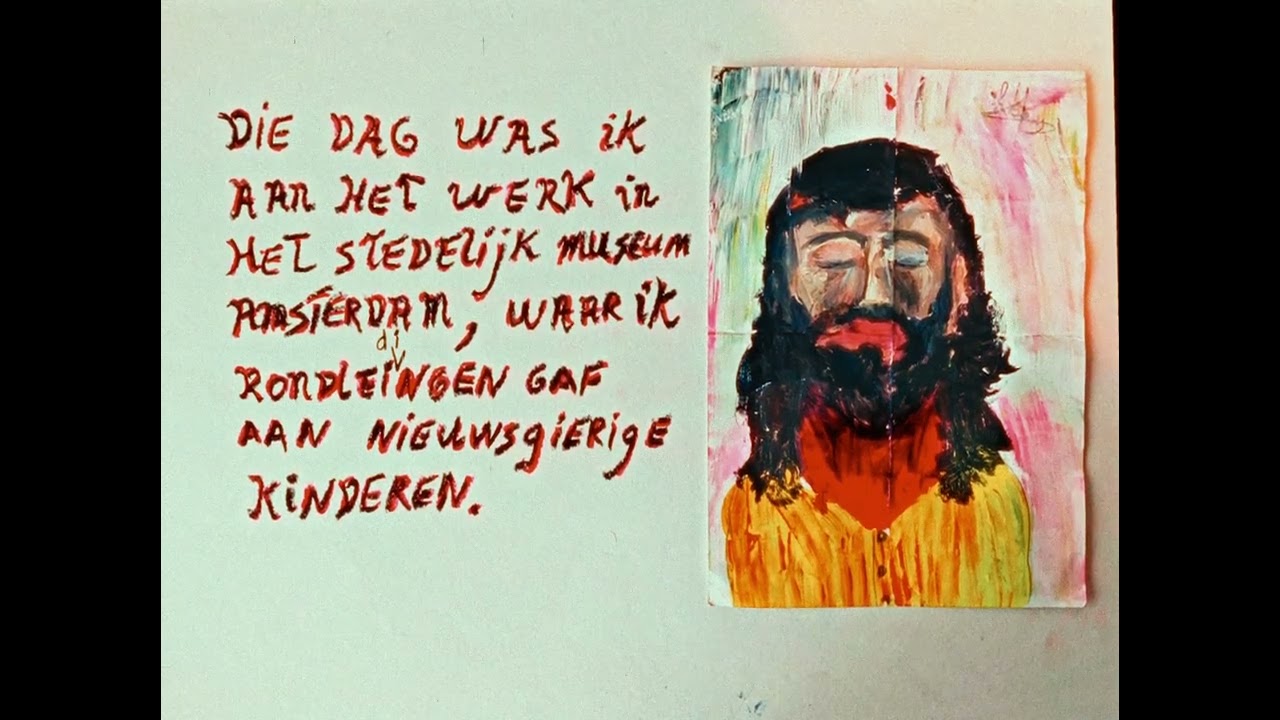 DiE DAG WAS iK
AAN HET WERK in
HET STEDELijK MUSEUM
AMSTERDAM, WAAR iK
di
RONDLEiNGEN GAF
AAN NiEUWSgiERigE
KiNDEREN.